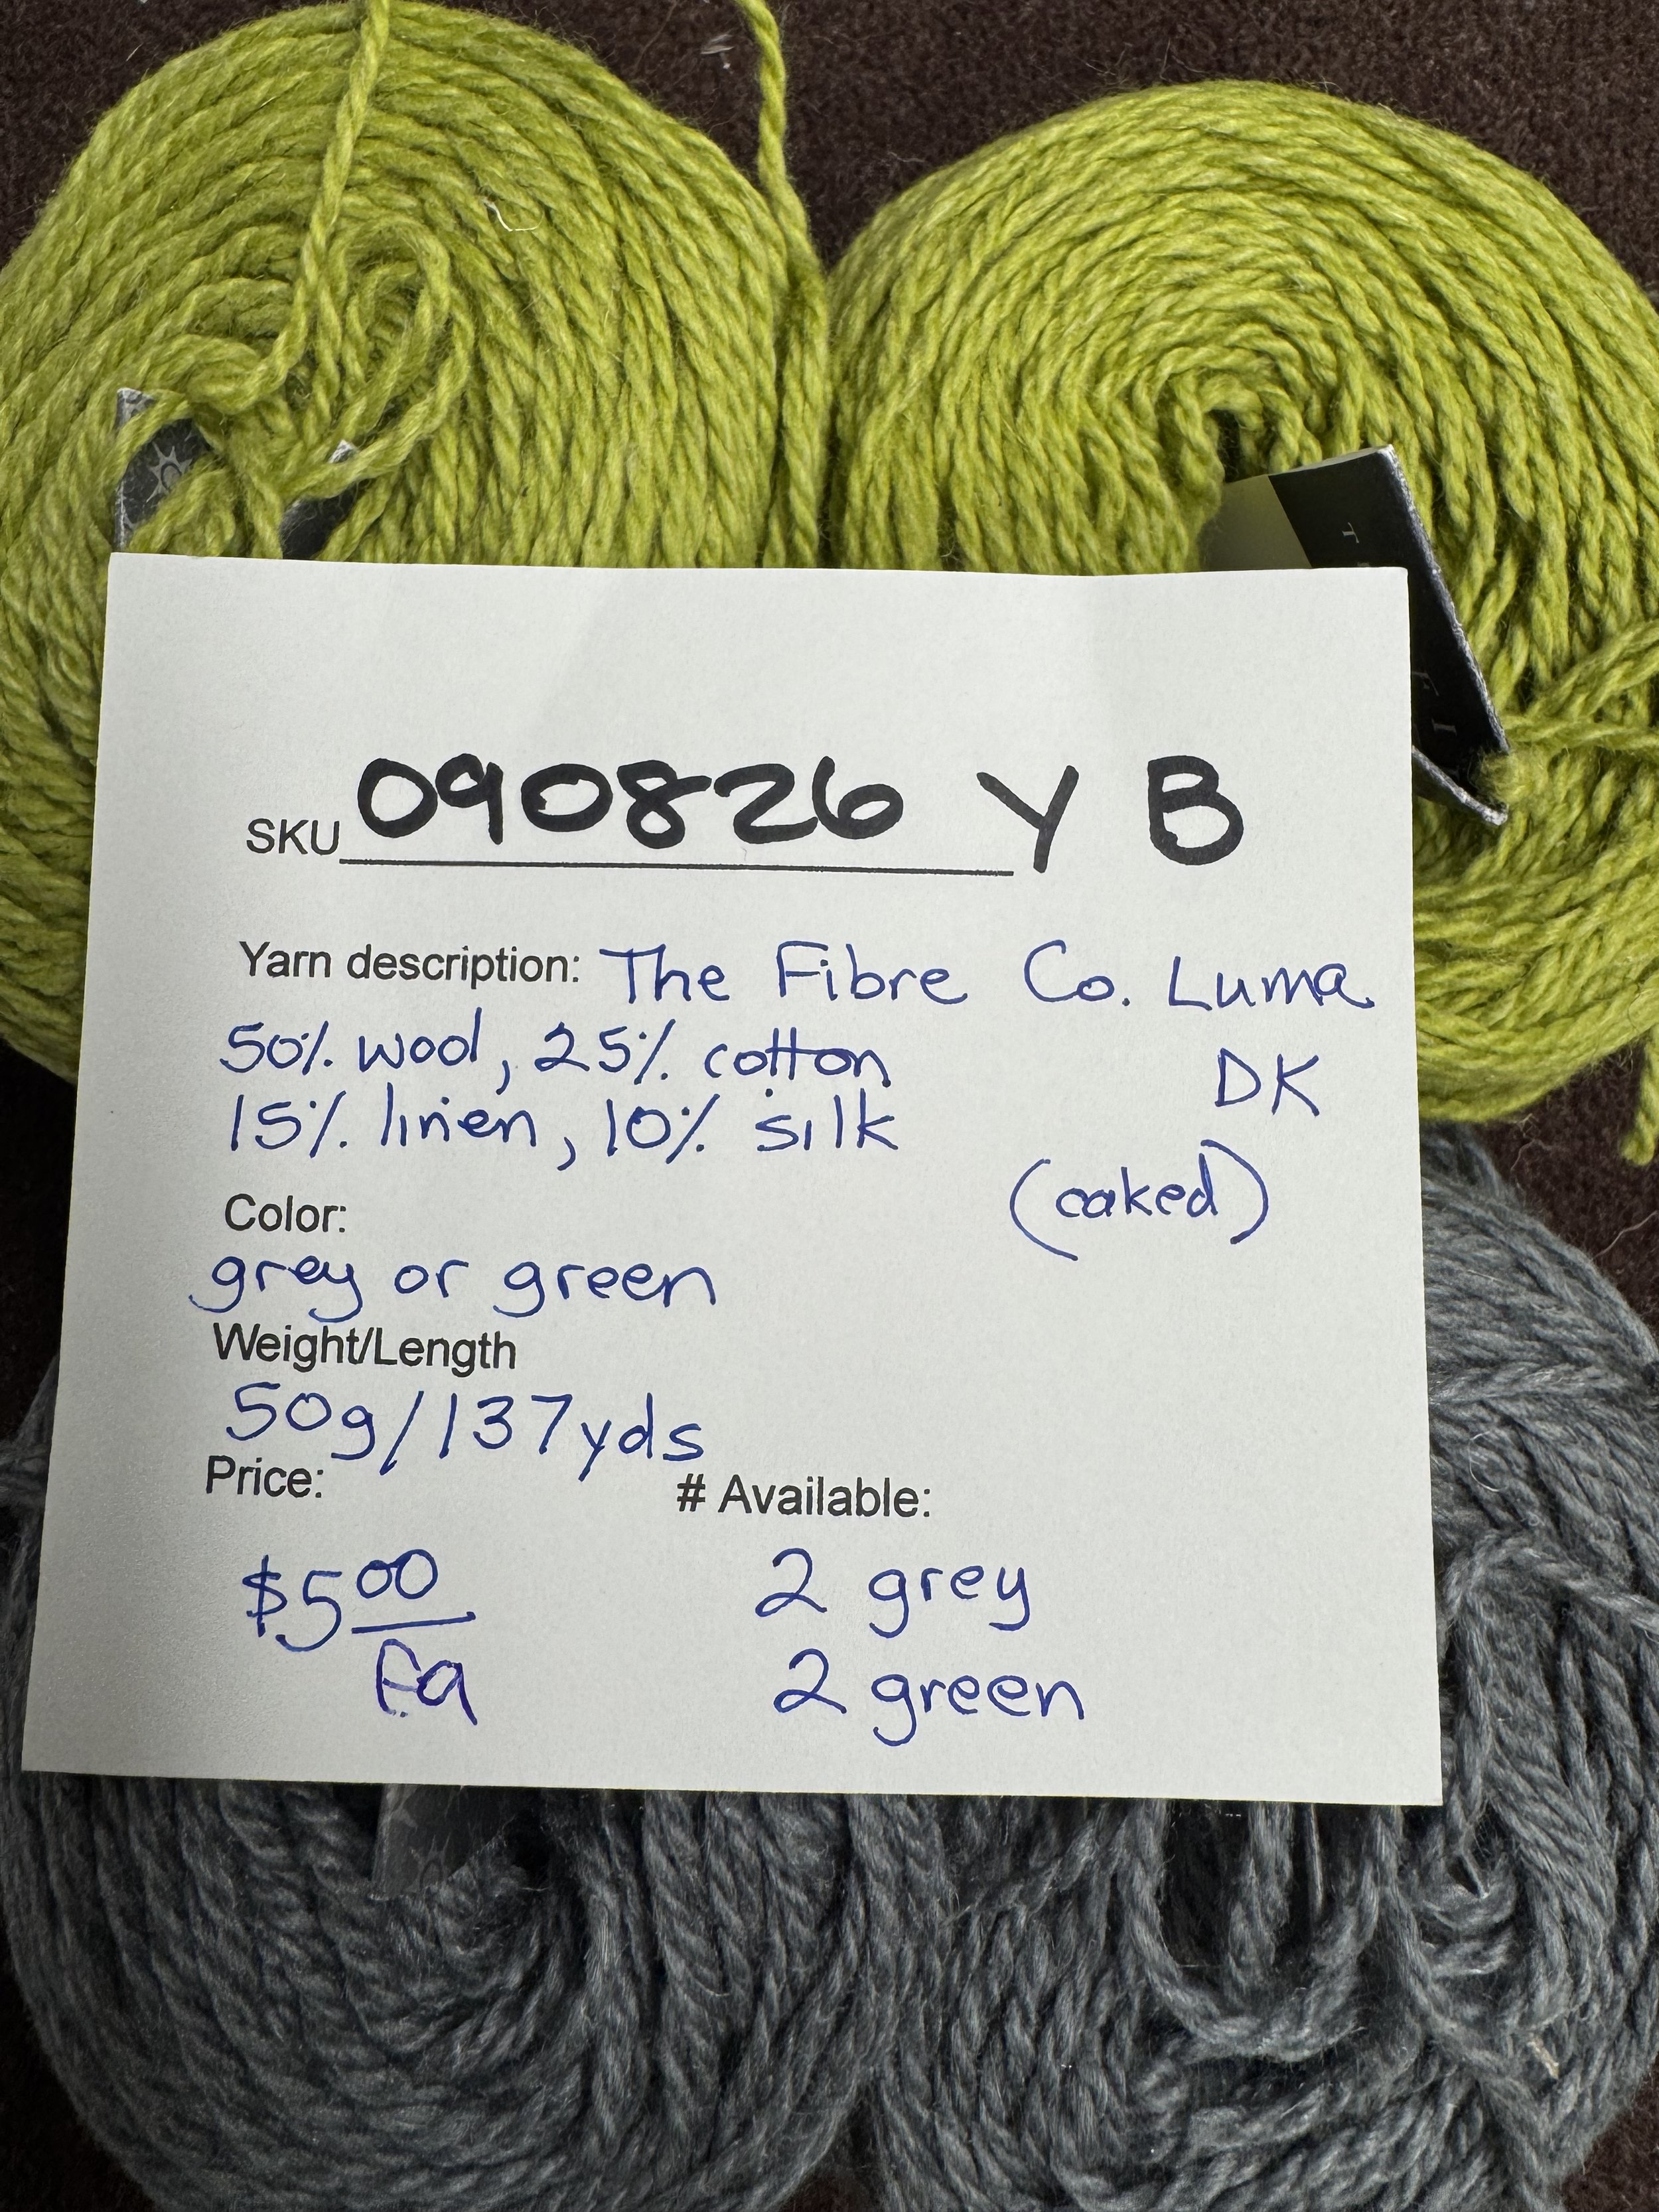 SKU 090826 Y B
Yarn description: The Fibre Co. Luma
50% wool, 25% cotton DK
15% linen, 10% silk
(caked)
Color:
grey or green
Weight/Length
50g/137yds
Price: # Available:
$5.00 2 grey
Ea 2 green